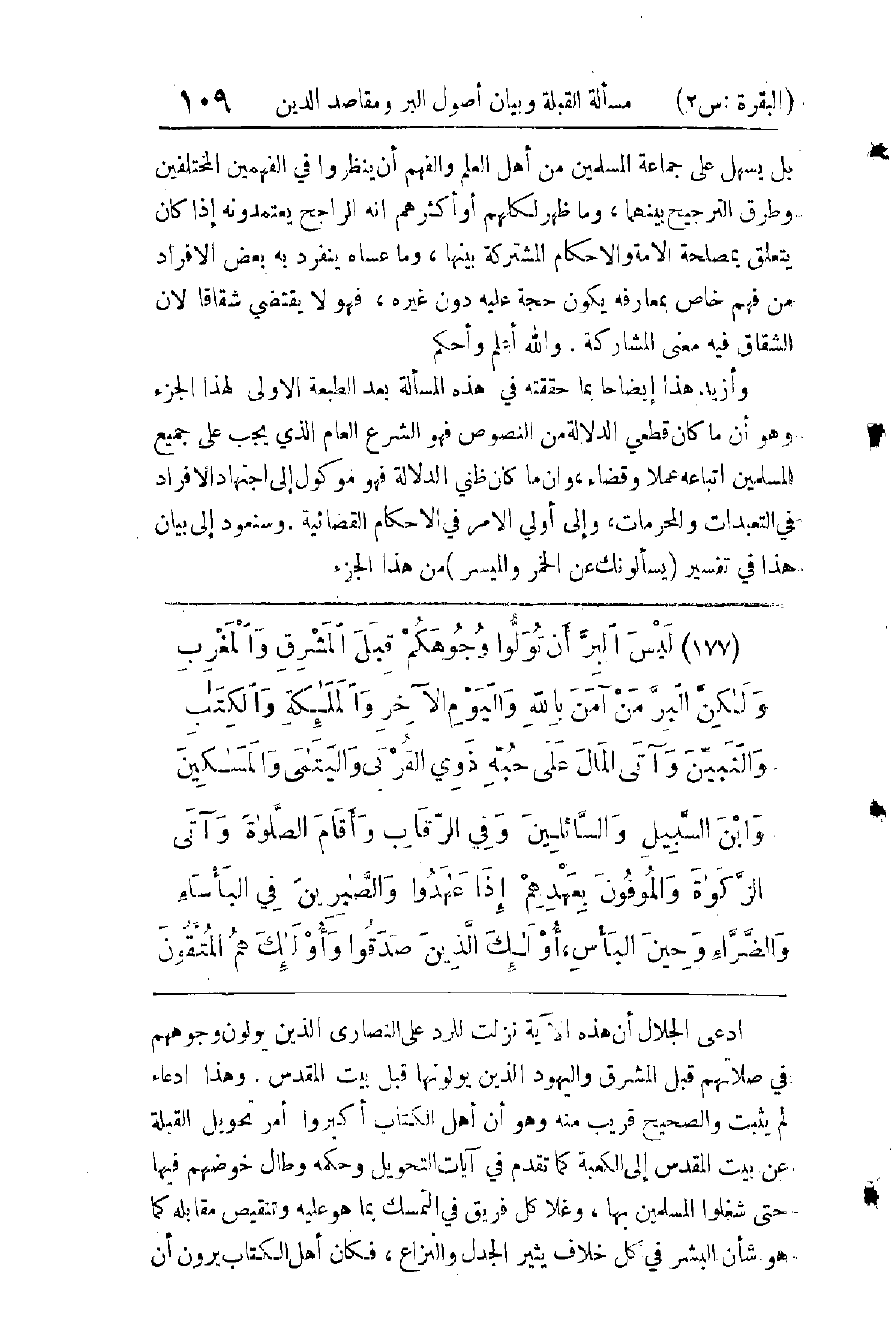 (البقرة : س ٢) مسألة القبلة وبيان أصول البر ومقاصد الدين ١٠٩
بل يسهل على جماعة المسلمين من أهل العلم والفهم أن ينظروا في الفهمين المختلفين
وطرق الترجيح بينهما ، وما ظهر لكلهم أو أكثرهم انه الراجح يعتمدونه إذا كان
يتعلق بمصلحة الامة والاحكام المشتركة بينها ، وما عساه ينفرد به بعض الافراد
من فهم خاص بمعارفه يكون حجة عليه دون غيره ، فهو لا يقتضي شقاقا لان
الشقاق فيه معنى المشاركة . والله أعلم وأحكم
وأزيد هذا إيضاحا بما حققته في هذه المسألة بعد الطبعة الاولى لهذا الجزء
وهو أن ما كان قطعي الدلالة من النصوص فهو الشرع العام الذي يجب على جميع
المسلمين اتباعه عملا وقضاء ، وان ما كان ظني الدلالة فهو موكول إلى اجتهاد الافراد
في التعبدات والمحرمات، وإلى أولي الامر في الاحكام القضائية . وسنعود إلى بيان
هذا في تفسير ( يسألونك عن الخمر والميسر ) من هذا الجزء
(١٧٧) لَيْسَ ٱلبِرَّ أَن تُوَلُّوا وُجُوهَكُمْ قِبَلَ ٱلمَشْرِقِ وَٱلْمَغْرِبِ
وَلَـٰكِنَّ البِرَّ مَنْ آمَنَ بِاللهِ وَاليَوْمِ الآخِرِ وَٱلمَلَـٰئِكَةِ وَٱلكِتَـٰبِ
وَالنَّبِيِّنَ وَآتَى المَالَ عَلَى حُبِّهِ ذَوِي القُرْبَى وَاليَتَـٰمَى وَالمَسَـٰكِينَ
وَابْنَ السَّبِيلِ وَالسَّائِلِينَ وَفِي الرِّقَابِ وَأَقَامَ الصَّلَوٰةَ وَآتَى
الزَّكَوٰةَ وَالمُوفُونَ بِعَهْدِهِمْ إِذَا عَـٰهَدُوا وَالصَّـٰبِرِينَ فِي البَأْسَاءِ
وَالضَّرَّاءِ وَحِينَ البَأْسِ، أُوْلَـٰئِكَ الَّذِينَ صَدَقُوا وَأُوْلَـٰئِكَ هُمُ المُتَّقُونَ
ادعى الجلال أن هذه الآية نزلت للرد على النصارى الذين يولون وجوههم
في صلاتهم قبل المشرق واليهود الذين يولونها قبل بيت المقدس . وهذا ادعاء
لم يثبت والصحيح قريب منه وهو أن أهل الكتاب أكبروا أمر تحويل القبلة
عن بيت المقدس إلى الكعبة كما تقدم في آيات التحويل وحكمه وطال خوضهم فيها
حتى شغلوا المسلمين بها ، وغلا كل فريق في التمسك بما هو عليه وتنقيص مقابله كما
هو شأن البشر في كل خلاف يثير الجدل والنزاع ، فكان أهل الكتاب يرون أن